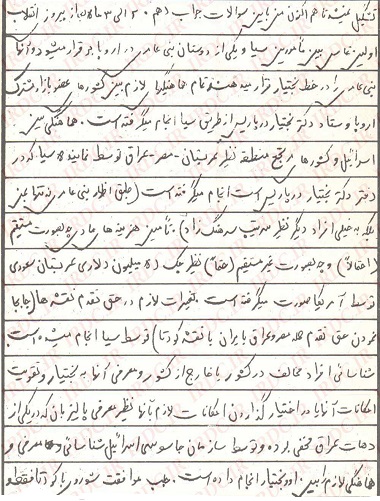 تشکیل نشده تا هم اکنون من به این سوالات جواب دهم ۲۰ الی ۳۵ از پیروزی انقلاب
اولین تماس بین مأمورین سیا و یکی از دوستان بنی عامری در اروپا برقرار میشود و آنها
بنی عامری را در خط بختیار قرار میدهند تمام هماهنگی لازم بین کشورهای عضو بازار مشترک
اروپا و ستاد دکتر بختیار در پاریس از طریق سیا انجام میگرفته است. هماهنگی بین
اسرائیل و کشورهای مرتجع منطقه نظیر عربستان - مصر - عراق توسط نماینده سیا که در
دفتر دکتر بختیار در پاریس است انجام میگرفته است (طبق اظهار بنی عامری نه تنها بمن
بلکه به خیلی افراد دیگر نظیر سرتیپ سرهنگ زاد) تأمین هزینه های مادی چه بصورت مستقیم
(احتمالاً) و چه بصورت غیر مستقیم (حتماً) نظیر چک (۵ میلیون دلاری عربستان سعودی
توسط آمریکا صورت میگرفته است. تغییرات لازم در حق تقدم نقشه ها (جابجا
کردن حق تقدم حمله مصر و عراق با ایران با نقشه کودتا) توسط سیا انجام میشده است
شناسائی افراد مخالف در کشور یا خارج از کشور و معرفی آنها به بختیار و تقویت
امکانات آنها یا در اختیار گذاردن امکانات لازم بآنها نظیر معرفی پالیزبان که در یکی از
دهات عراق مخفی بوده و توسط سازمان جاسوسی اسرائیل شناسائی و معرفی و
هماهنگی لازم بین او و بختیار انجام داده است. جلب موافقت شوروی با کودتا فقط و